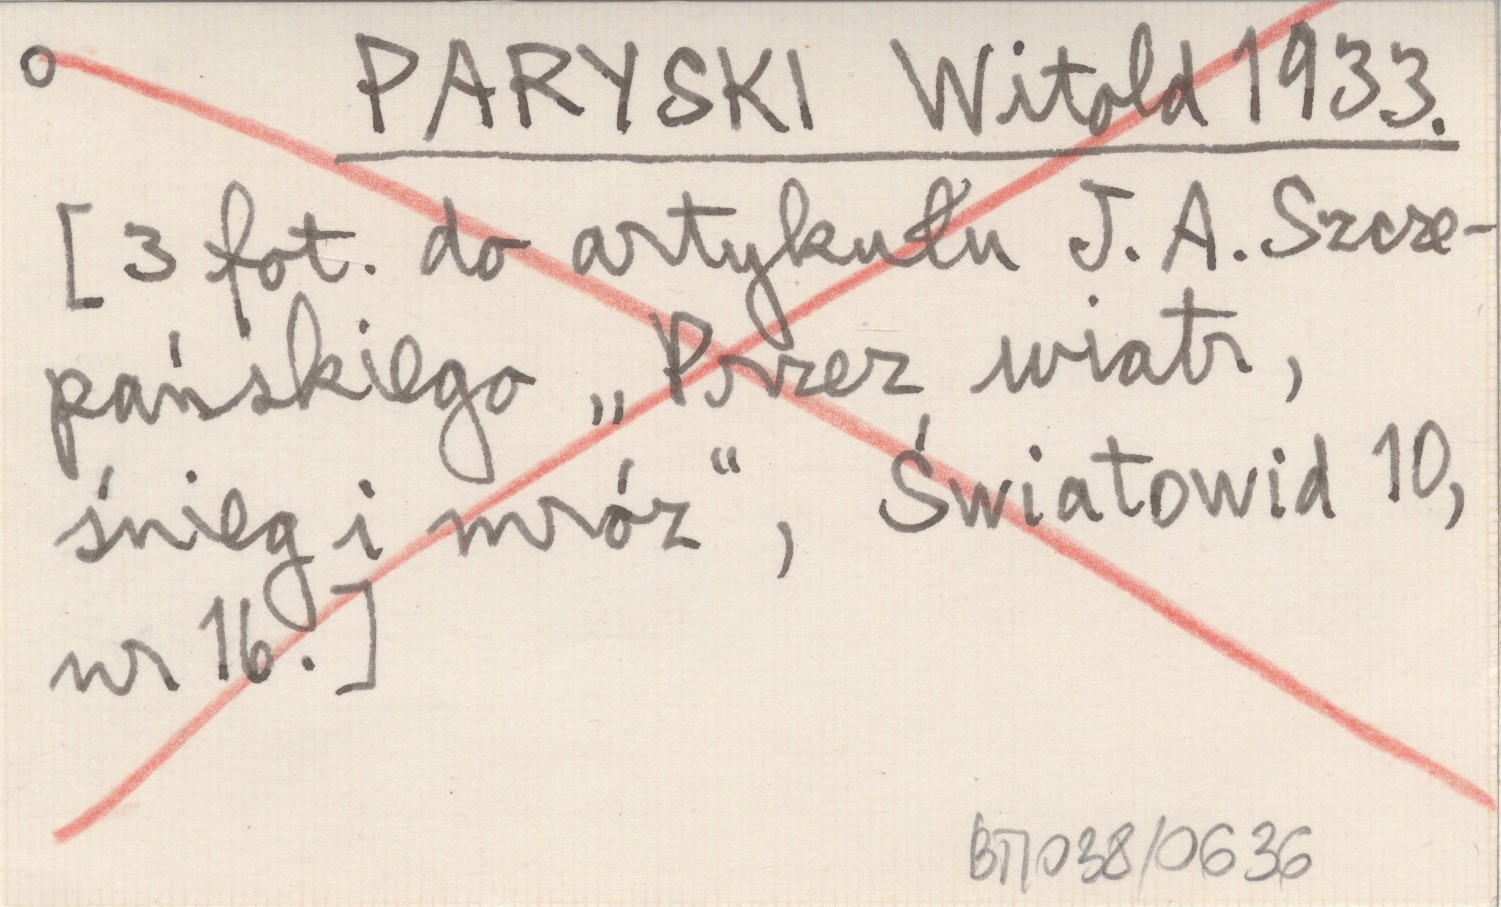 PARYSKI Witold 1933.
[3 fot. do artykułu J. A. Szcze-
pańskiego „Przez wiatr,
śnieg i mróz“, Światowid 10,
nr 16.]
038/0636